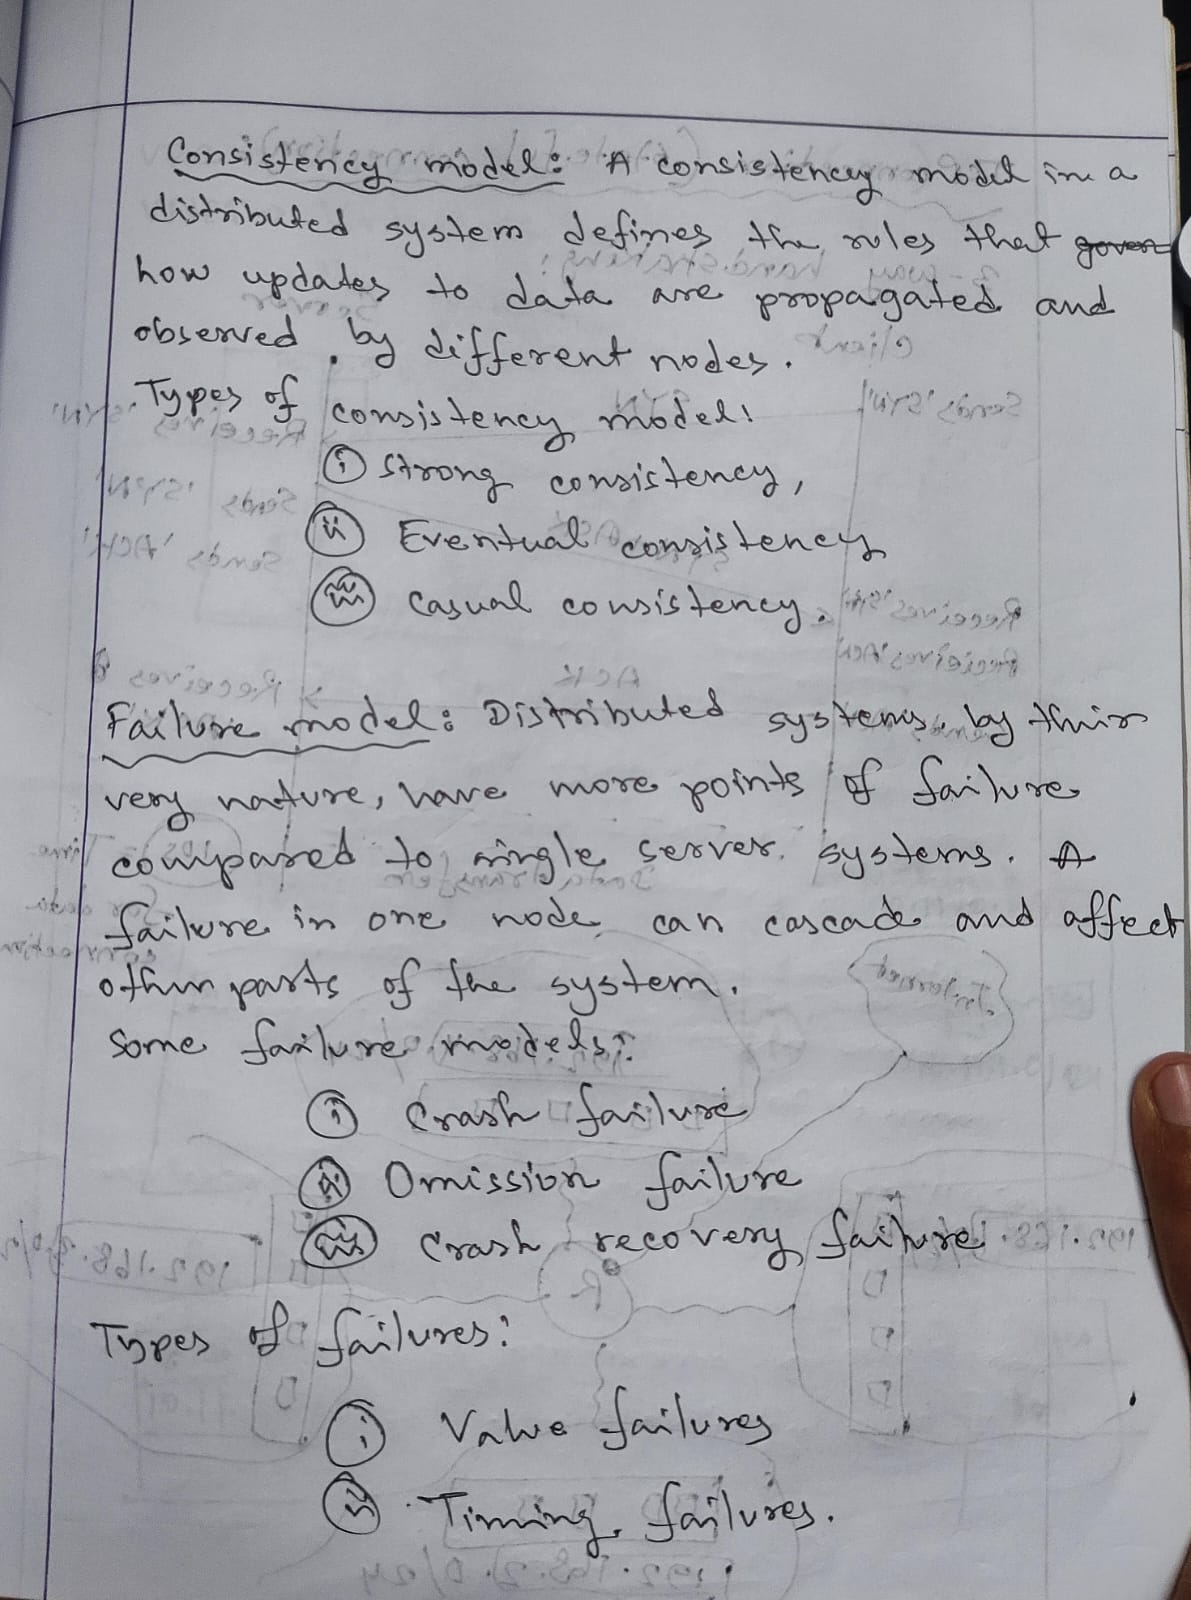 Consistency model: A consistency model in a
distributed system defines the rules that goven
how updates to data are propagated and
observed by different nodes.
Types of consistency model:
(i) Strong consistency,
(ii) Eventual consistency
(iii) Casual consistency.
Failure model: Distributed systems, by their
very nature, have more points of failure
compared to single server systems. A
failure in one node can cascade and affect
other parts of the system.
Some failure models:
(i) Crash failure
(ii) Omission failure
(iii) Crash recovery failure
Types of failures:
(i) Value failures
(ii) Timing failures.